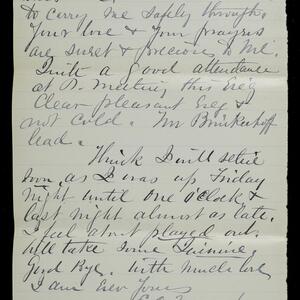 to carry me safely through.
Your love & Your prayers
are sweet & precious to Me.
Quite a good attendance
at P. meeting this Eve
Clear pleasant Eve &
not cold. Mr Brinkerhoff
lead.
Think I will retire
soon as I was up Friday
night until one O'Clock &
last night almost as late.
I feel about played out
will take some Quinine.
Good Bye. With much love
I am Ever Yours